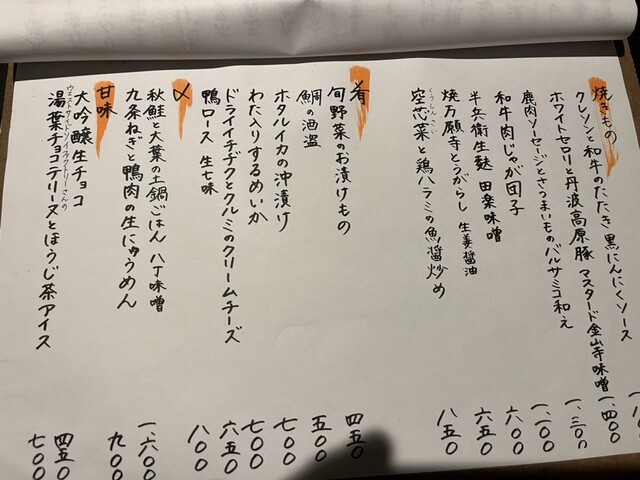 焼きもの
クレソンと和牛のたたき 黒にんにくソース
ホワイトセロリと丹波高原豚 マスタード金山寺味噌 一、四〇〇
鹿肉ソーセージとさつまいものバルサミコ和え 一、三〇〇
和牛肉じゃが団子 一、一〇〇
半兵衛生麩 田楽味噌 六〇〇
焼万願寺とうがらし 生姜醤油 六五〇
くうしんさい
空芯菜と鶏ハラミの魚醤炒め 八五〇
肴
旬野菜のお漬けもの 四五〇
鯛の酒盗 五〇〇
ホタルイカの沖漬け 七〇〇
わた入りするめいか 七〇〇
ドライイチヂクとクルミのクリームチーズ 六五〇
鴨ロース 生七味 八〇〇
〆
秋鮭と大葉の土鍋ごはん 八丁味噌 一、六〇〇
九条ねぎと鴨肉の生にゅうめん 九〇〇
甘味
大吟醸生チョコ 四五〇
ウエストサイドソイファクトリーさんの
湯葉チョコテリーヌとほうじ茶アイス 七〇〇